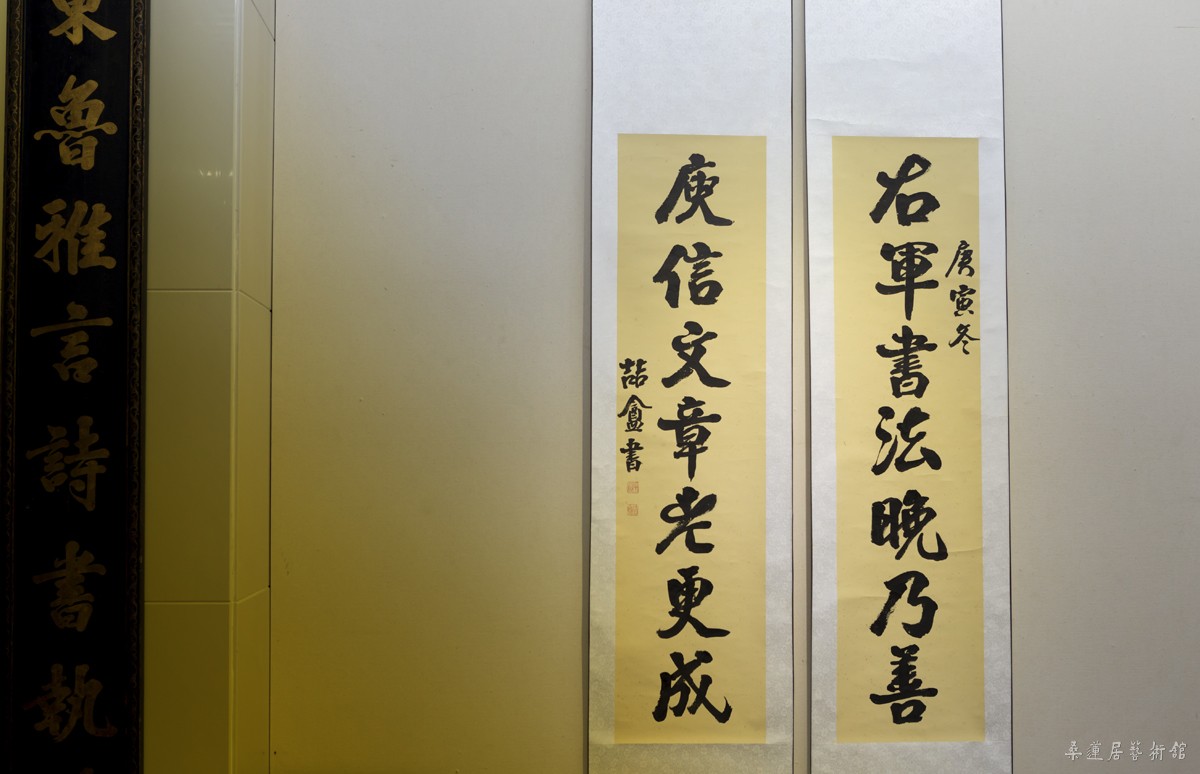 右軍書法晚乃善
庚寅冬
庾信文章老更成
喆盦書
東魯雅言詩書執
桑蓮居藝術館